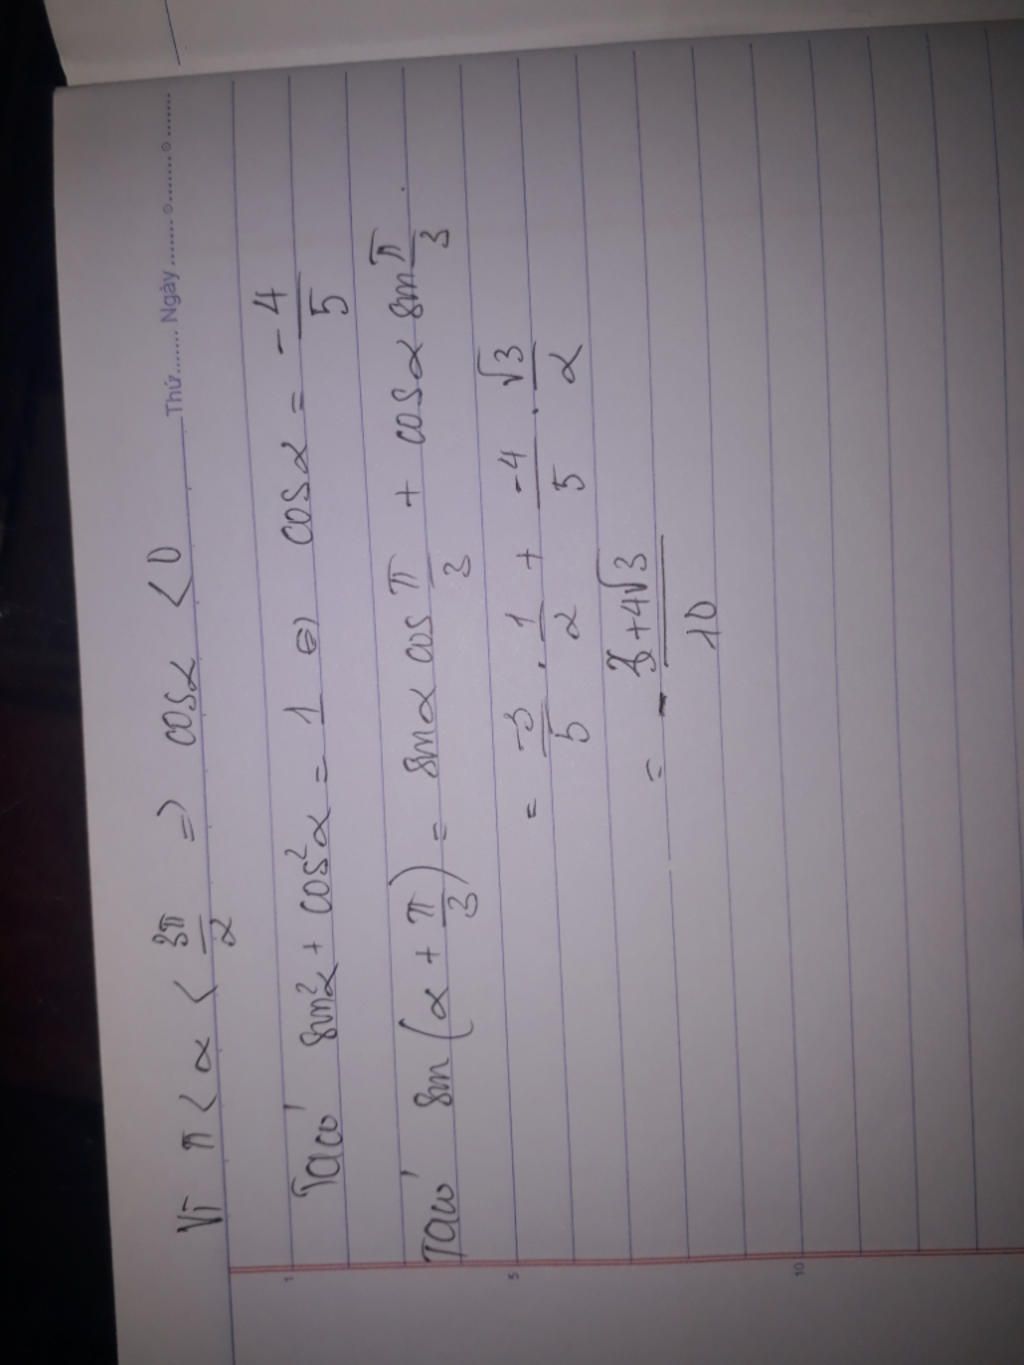 Thứ....... Ngày ........ o ........ o .......
Vì π < α < 3π/2 => cosα < 0
Ta có sin²α + cos²α = 1 (=) cosα = -4/5
Ta có sin(α + π/3) = sinα cos π/3 + cosα sin π/3.
= -3/5 . 1/2 + -4/5 . √3/2
= - 3+4√3/10
1
5
10